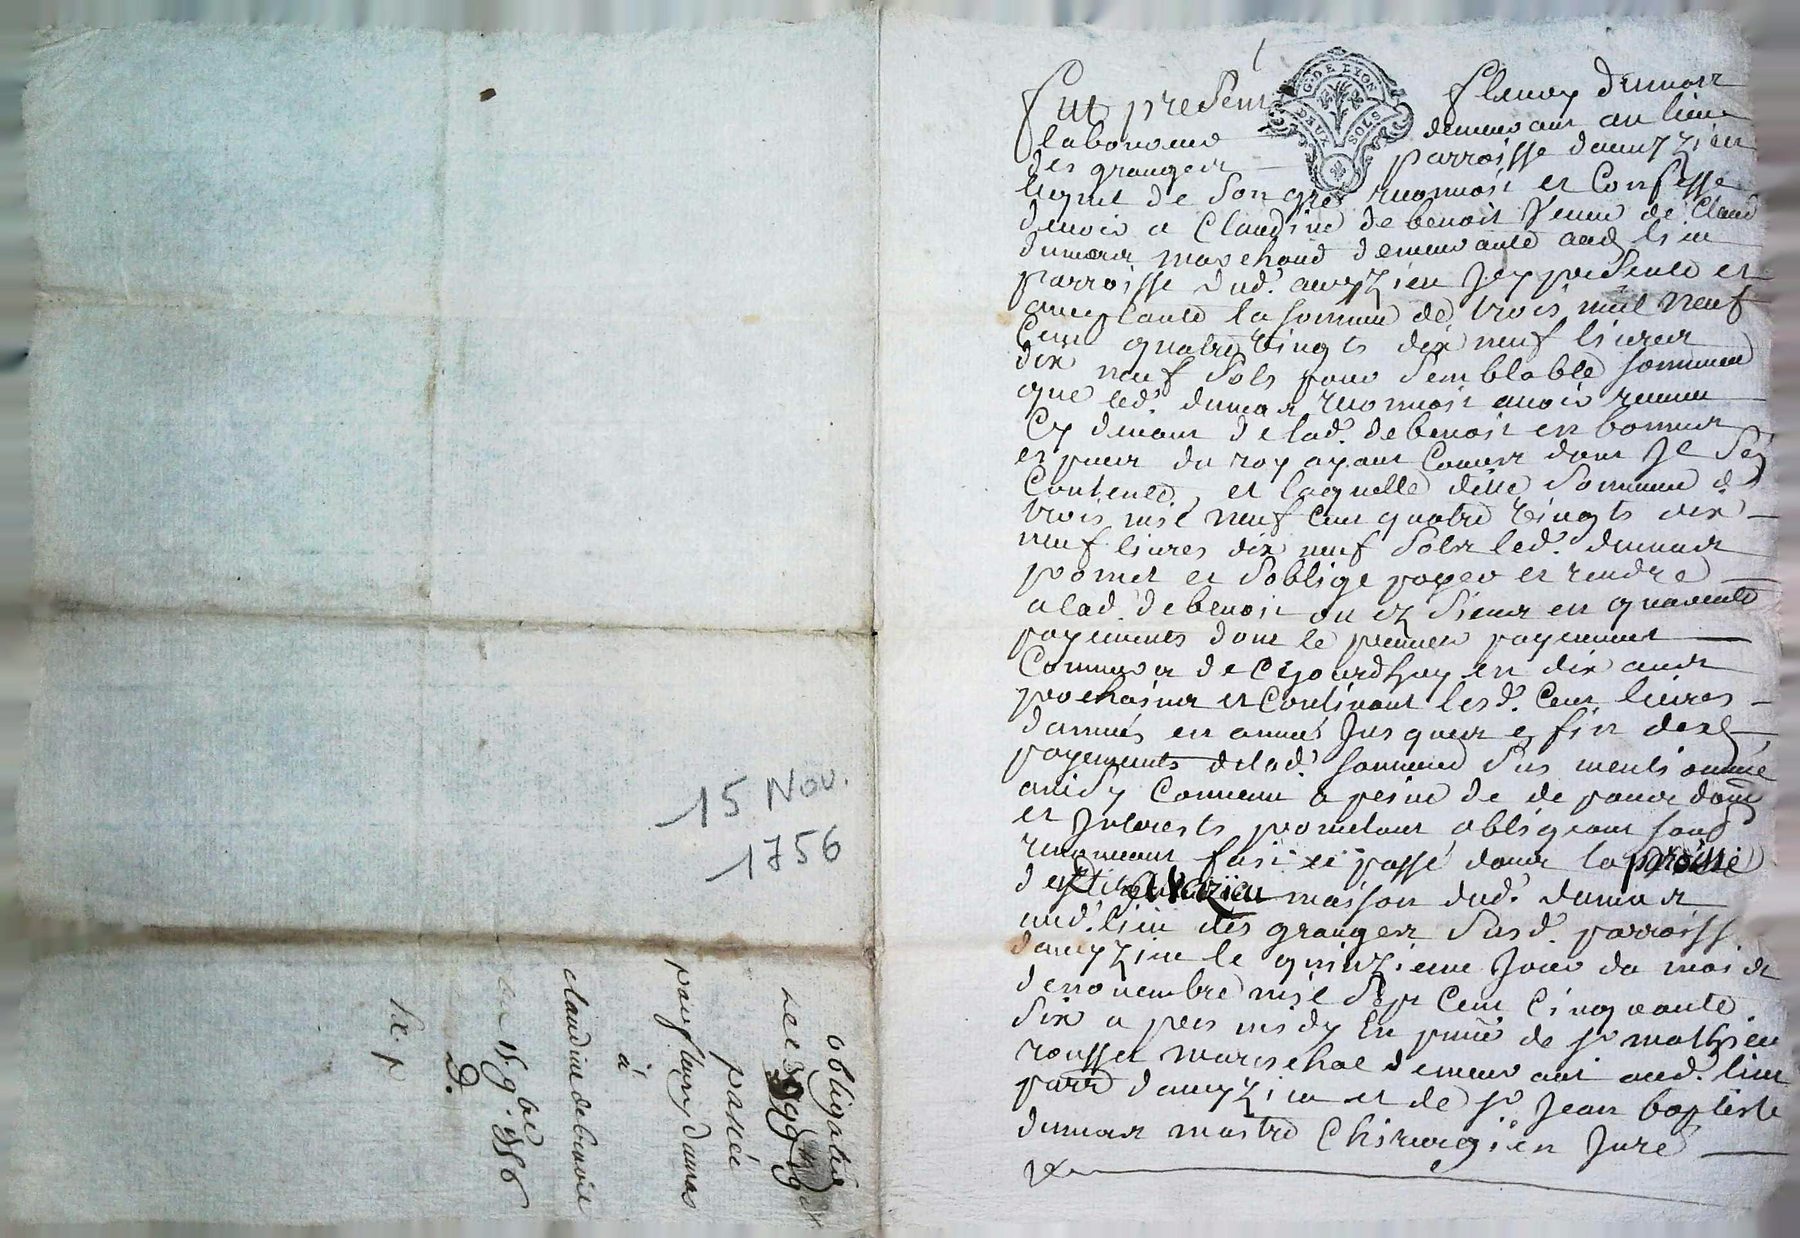 fut present fleury dumas
laboureur demeurant au lieu
des granges parroisse dauuzieu
lequel de son gré reconnoist et confesse
deuoir a Claudine debenoit veuue de Claud
dumas marchand demeurante aud. lieu
parroisse dud. auuzieu Icy presente et
acceptante la somme de trois mil neuf
Cent quatre vingts dix neuf liures
dix neuf sols pour semblable somme
que led. dumas reconnoist auoir receue
Cy deuant de lad. debenoit en bonnes
especes du roy ayant Cours dont Il s'est
Contenté, et laquelle ditte somme de
trois mil neuf Cent quatre vingts dix
neuf liures dix neuf sols led. dumas
promet et soblige payer et rendre
a lad. debenoit ou ez siens en quarente
payements dont le premier payement
Commencera de Cejourdhuy en dix ans
prochains et Continuant lesd. Cent liures
dannée en année Jusques a fin desd.
payements de lad. somme sus mentionnée
ainsy Conuenu a peine de de pans domg
et Interests promettant obligeant sous
renonceant fait et passé dans la
maison dud. dumas
aud. lieu des granges susd. parroisse
dauuzieu le quinzieme Jour du mois de
de nouembre mil sept Cent Cinquante
six a pres midy En pnce de sr mathieu
rousset mareschal demeurant aud. lieu
parr dauuzieu et de sr. Jean baptiste
dumas maitre Chirurgien Juré
15 Nov.
1756
obligation
de
passée
par fleury dumas
à
claudine debenoit
15 9bre 1756
D.